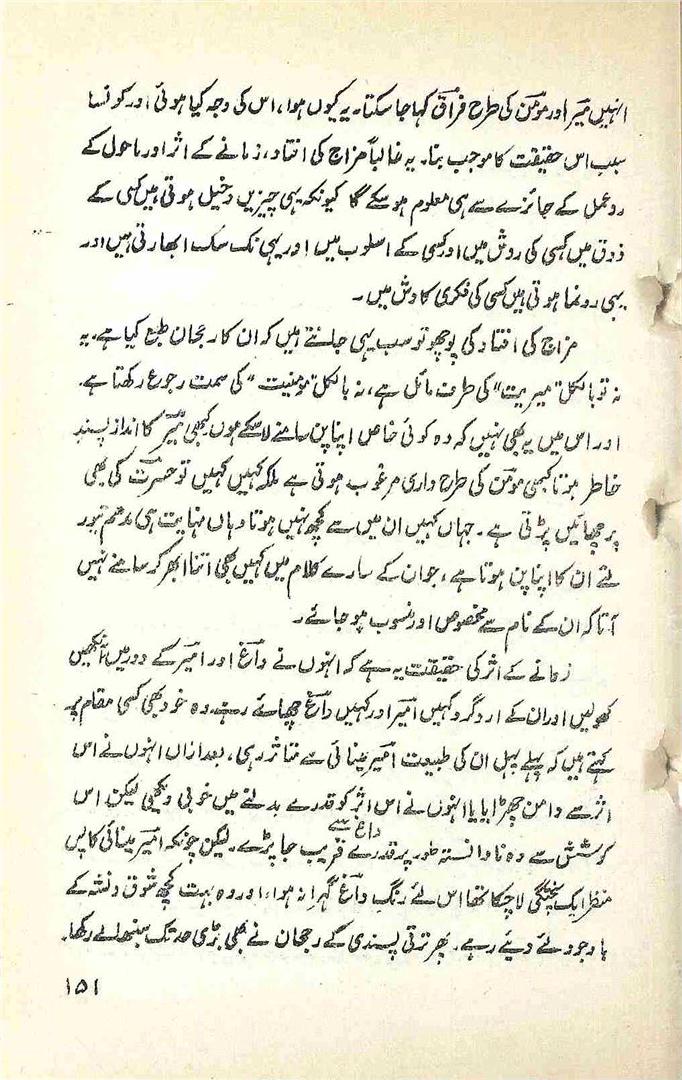 انہیں میر اور مومن کی طرح فراق کہا جا سکتا۔ یہ کیوں ہوا، اس کی وجہ کیا ہوئی اور کونسا
سبب اس حقیقت کا موجب بنا۔ یہ غالباً مزاج کی افتاد، زمانے کے اثر اور ماحول کے
ردعمل کے جائزے سے ہی معلوم ہو سکے گا کیونکہ یہی چیزیں دخیل ہوتی ہیں کسی کے
ذوق میں کسی کی روش میں اور کسی کے اسلوب میں اور یہی نک سک ابھارتی ہیں اور
یہی رونما ہوتی ہیں کسی کی فکری کاوش میں۔
مزاج کی افتاد کی پوچھو تو سب یہی جانتے ہیں کہ ان کا رجحان طبع کیا ہے۔ یہ
نہ تو بالکل "میریت" کی طرف مائل ہے، نہ بالکل "مومنیت" کی سمت رجوع رکھتا ہے۔
اور اس میں یہ بھی نہیں کہ وہ کوئی خاص اپنا پن سامنے لا سکے ہوں کبھی میر کا انداز پسند
خاطر ہوتا کبھی مومن کی طرح داری مرغوب ہوتی ہے بلکہ کہیں کہیں تو حسرت کی بھی
پرچھائیں پڑتی ہے۔ جہاں کہیں ان میں سے کچھ نہیں ہوتا وہاں نہایت ہی مدھم تیور
لئے ان کا اپنا پن ہوتا ہے، جو ان کے سارے کلام میں کہیں بھی اتنا ابھر کر سامنے نہیں
آتا کہ ان کے نام سے مخصوص اور منسوب ہو جائے۔
زمانے کے اثر کی حقیقت یہ ہے کہ انہوں نے داغ اور امیر کے دور میں آنکھیں
کھولیں اور ان کے اردگرد کہیں امیر اور کہیں داغ چھائے رہے۔ وہ خود بھی کسی مقام پر
کہتے ہیں کہ پہلے پہل ان کی طبیعت امیر مینائی سے متاثر رہی، بعد ازاں انہوں نے اس
اثر سے دامن چھڑایا یا انہوں نے اس اثر کو قدرے بدلنے میں خوبی دیکھی لیکن اس
کوشش سے وہ نادانستہ طور پر قدرے داغ سے قریب جا پڑے۔ لیکن چونکہ امیر مینائی کا پس
منظر ایک پختگی لا چکا تھا اس لئے رنگ داغ گہرا نہ ہوا، اور وہ بہت کچھ شوق وتشہ کے
باوجود لئے دیئے رہے۔ پھر ترقی پسندی کے رجحان نے بھی بڑی حد تک سنبھالے رکھا۔
۱۵۱